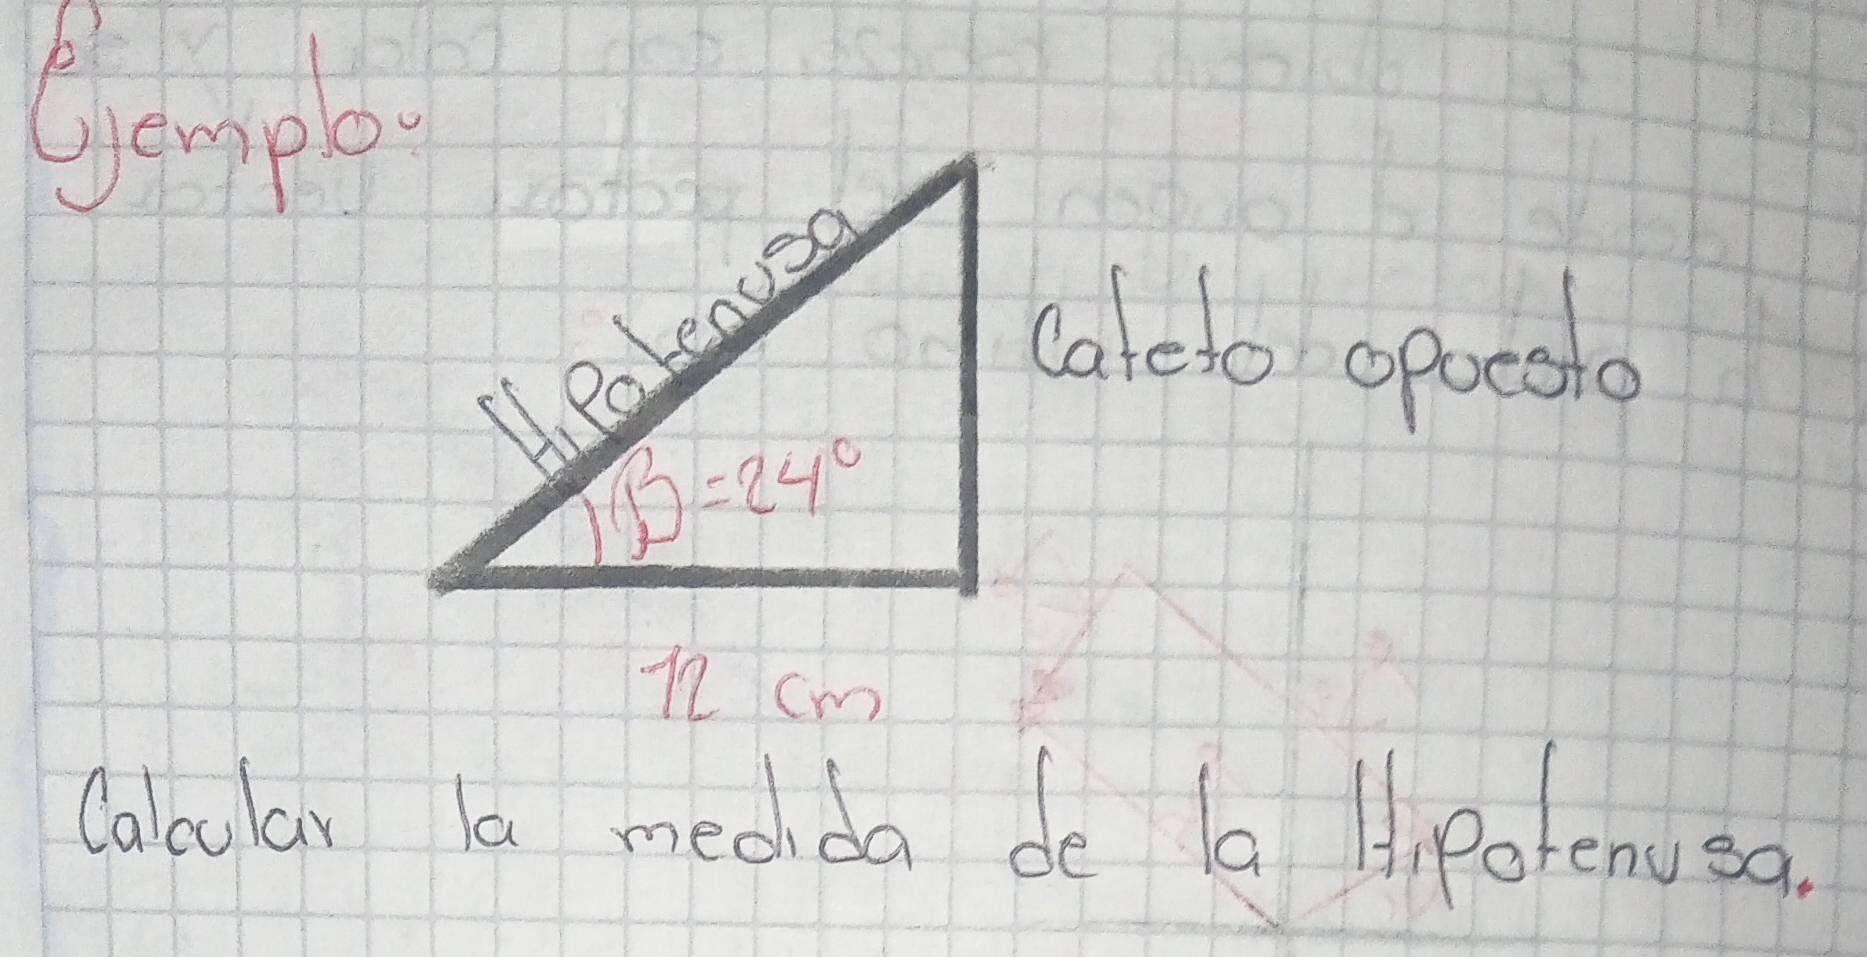 Ejemplo:
Hipotenusa
Cateto opuesto
B=24°
12 cm
Calcular la medida de la Hipotenusa.